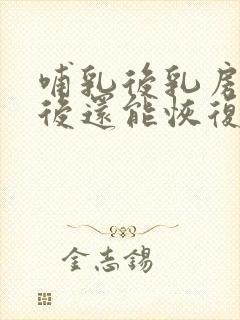 哺乳後乳房
後還能恢復
金志錫